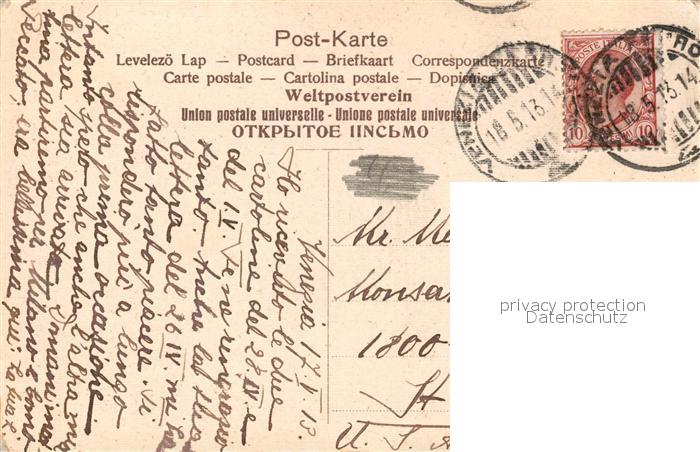 Post-Karte
Levelezö Lap — Postcard — Briefkaart Correspondenzkarte
Carte postale — Cartolina postale — Dopisnica
Weltpostverein
Union postale universelle - Unione postale universale
ОТКРЫТОЕ ПИСЬМО
POSTE ITALIANE
10 10
18.5.13.14
18.5.13.14
Venezia 17.V.13.
Ho ricevuto le due
cartoline del 28.IV. e
del 1.V. Te ne ringrazio
tanto. Anche la tua
lettera del 26.IV. mi ha
fatto tanto piacere. Ti
risponderò più a lungo
colla prima occasione.
Intanto spero che anche l'altra mia
lettera sia arrivata. Domani mat
tina partiremo per Milano e Como
Peccato, era bellissimo qui.
Mr.
Monsan
1800
St
U. S. A
privacy protection
Datenschutz